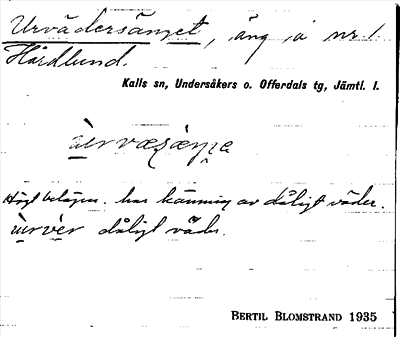 Urvädersänget, äng å nr. 1.
Hårdlund.
Kalls sn, Undersåkers o. Offerdals tg, Jämtl. l.
Högt belägen. har känning av dåligt väder.
ùrvèr dåligt väder.
BERTIL BLOMSTRAND 1935